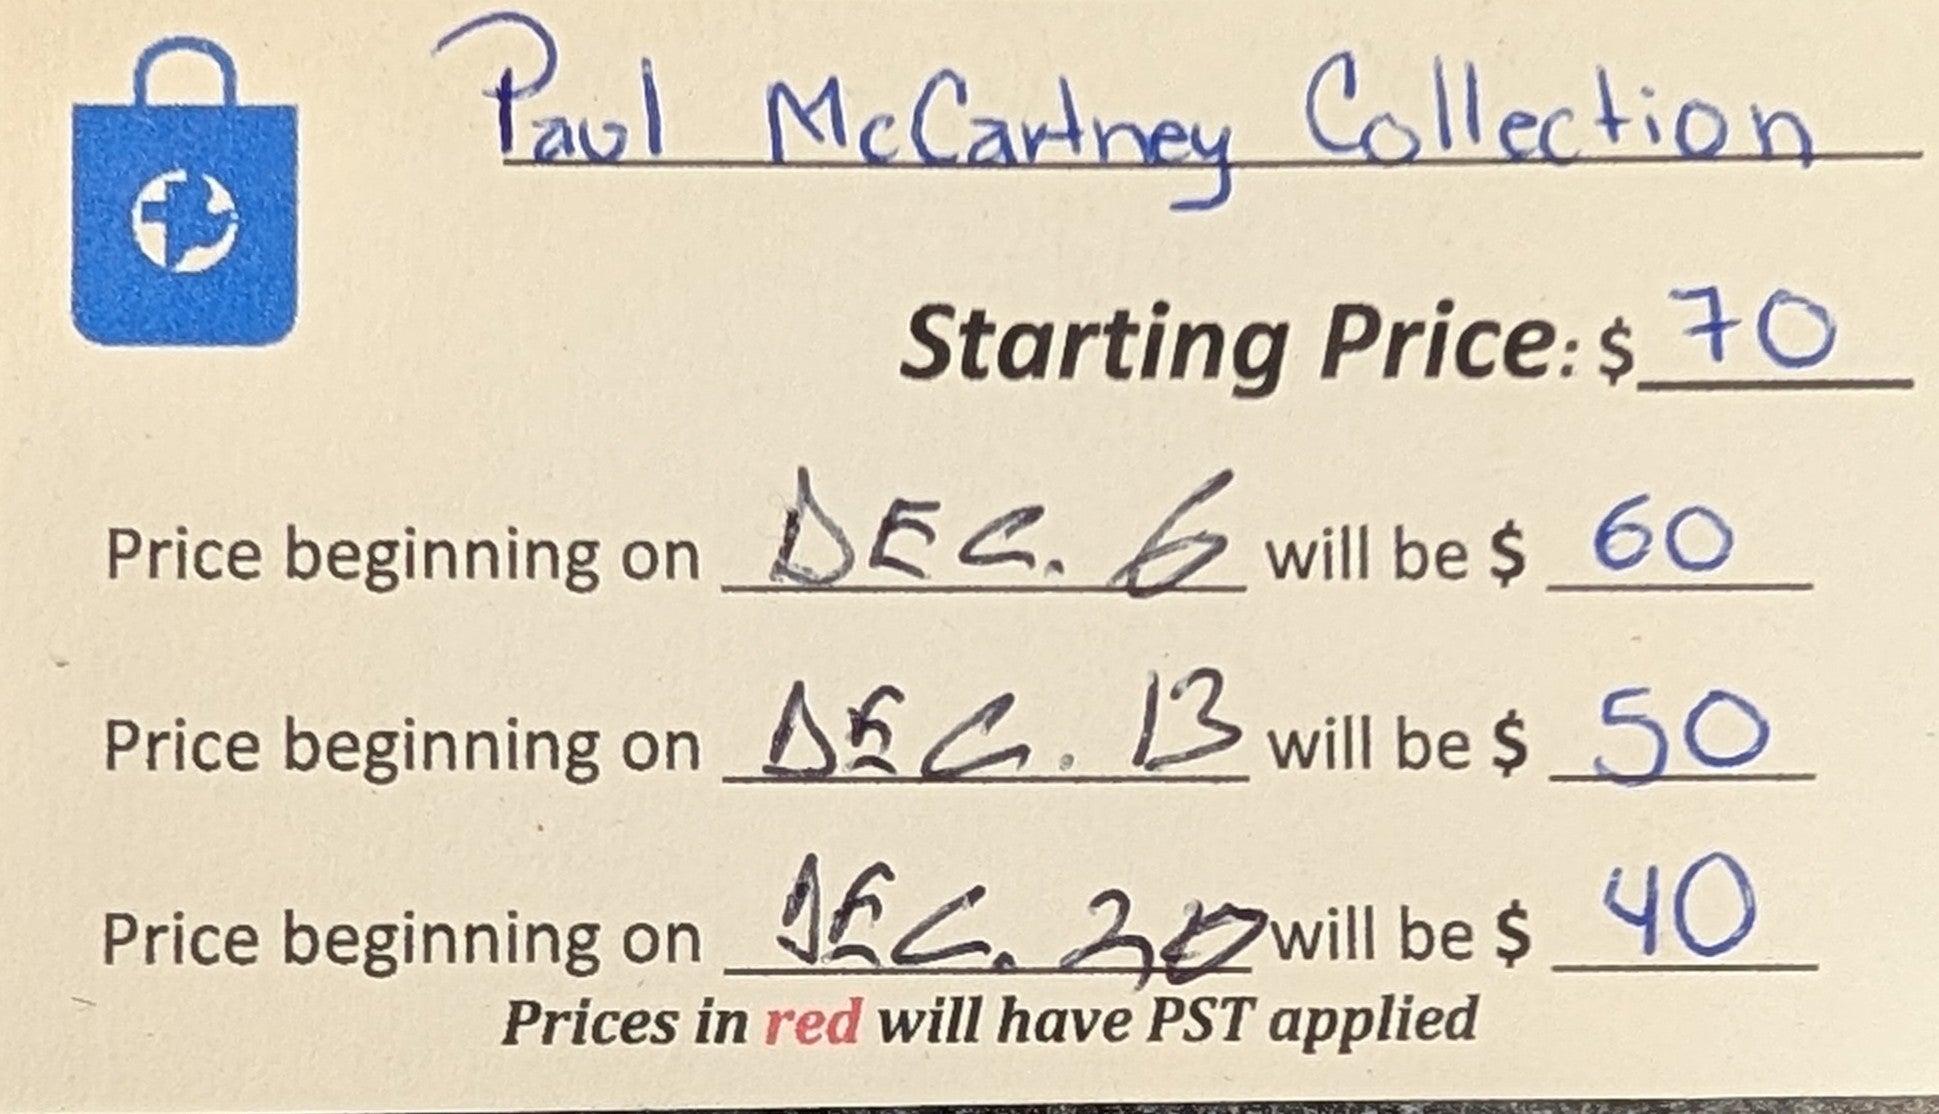 Paul McCartney Collection
Starting Price: $ 70
Price beginning on DEC. 6 will be $ 60
Price beginning on DEC. 13 will be $ 50
Price beginning on DEC. 20 will be $ 40
Prices in red will have PST applied